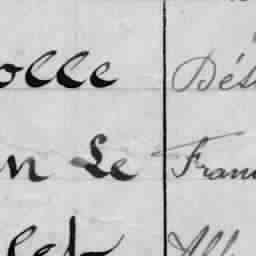 olle Dés
n Le Fran
let Alb